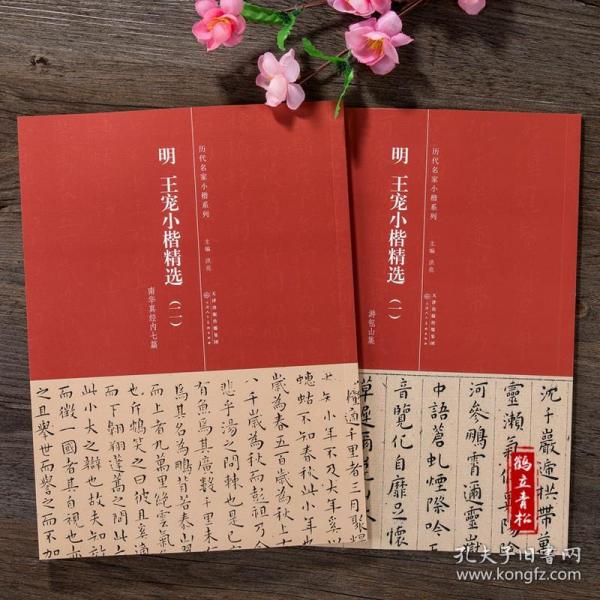 历代名家小楷系列
明 王宠小楷精选（二）
主编 洪亮
南华真经内七篇
適千里者三月聚
蟪蛄不知春秋此小年也
八千歲為秋而彭祖乃今
悲乎湯之問棘也是已
有魚焉其廣數千里未
焉其名為鵬背若泰山
上者九萬里絕雲氣
也斥鴳笑之曰彼且奚適
而下翱翔蓬蒿之間此
此小大之辯也故夫知
而徵一國者其自視也亦
之且舉世而譽之而不加
历代名家小楷系列
明 王宠小楷精选（一）
主编 洪亮
游包山集
沈千巖遞拱帶萬
河參鵬霄瀰靈嶽
中語蒼虬煙際吟
音覽化自靡懷
鹤立青松
孔夫子旧书网
www.kongfz.com